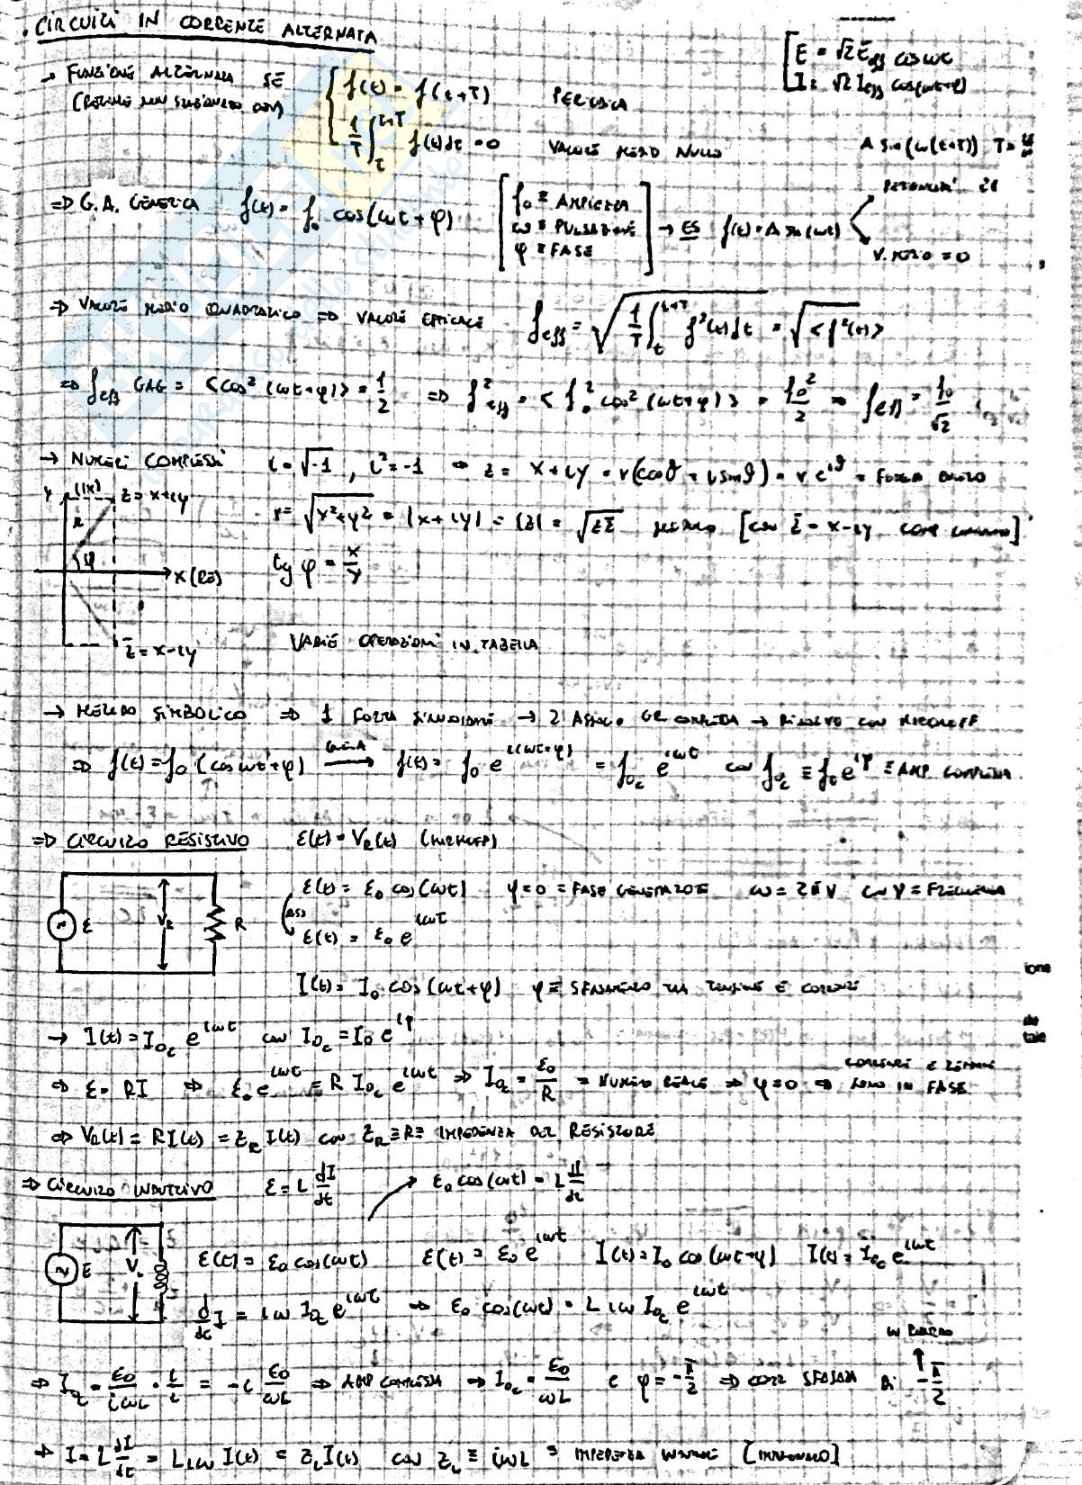 CIRCUITI IN CORRENTE ALTERNATA
E = √2 E_eff cos ωt
I = √2 I_eff cos(ωt+φ)
→ FUNZIONE ALTERNATA SE { f(t) = f(t+T) PERIODICA
1/T ∫_t^{t+T} f(t)dt = 0 VALORE MEDIO NULLO
A sin(ω(t+T))
⇒ G.A. GENERICA f(t) = f₀ cos(ωt + φ) [ f₀ ≡ AMPIEZZA
ω ≡ PULSAZIONE
φ ≡ FASE ] → ES f(t) = A sin(ωt)
V. MEDIO = 0
⇒ VALORE MEDIO QUADRATICO ⇒ VALORE EFFICACE f_eff = √(1/T ∫_t^{t+T} f²(t)dt) = √<f²(t)>
⇒ f_eff = <cos²(ωt+φ)> = 1/2 ⇒ f²_eff = <f₀² cos²(ωt+φ)> = f₀²/2 ⇒ f_eff = f₀/√2
→ NUMERI COMPLESSI i = √-1 , i² = -1 ⇒ z = x + iy = r(cosϑ + i sinϑ) = r e^{iϑ} = FORMA
y (Im) z = x+iy
r = √(x²+y²) = |x+iy| = |z| = √(z z̄) [con z̄ = x-iy]
φ x (Re) tg φ = x/y
z̄ = x-iy VARIE OPERAZIONI IN TABELLA
→ METODO SIMBOLICO ⇒ 1 → 2 → RISOLVO CON KIRCHOFF
⇒ f(t) = f₀ (cos ωt+φ) → f(t) = f₀ e^{i(ωt+φ)} = f₀c e^{iωt} con f₀c ≡ f₀ e^{iφ} ≡ AMP COMPLESSA
⇒ CIRCUITO RESISTIVO ε(t) = V_R(t) (KIRCHOFF)
ε V_R R
ε(t) = ε₀ cos(ωt) φ=0 = FASE GENERATORE ω = 2πν con ν = FREQUENZA
ε(t) = ε₀ e^{iωt}
I(t) = I₀ cos(ωt+φ) φ ≡ SFASAMENTO TRA TENSIONE E CORRENTE
→ I(t) = I₀c e^{iωt} con I₀c = I₀ e^{iφ}
⇒ ε = RI ⇒ ε₀ e^{iωt} = R I₀c e^{iωt} ⇒ I₀c = ε₀/R = NUMERO REALE ⇒ φ=0 ⇒ CORRENTE E TENSIONE SONO IN FASE
⇒ V_R(t) = RI(t) = Z_R I(t) con Z_R ≡ R ≡ IMPEDENZA DEL RESISTORE
⇒ CIRCUITO INDUTTIVO ε = L dI/dt → ε₀ cos(ωt) = L dI/dt
ε V_L
ε(t) = ε₀ cos(ωt) ε(t) = ε₀ e^{iωt} I(t) = I₀ cos(ωt+φ) I(t) = I₀c e^{iωt}
d/dt I = iω I₀c e^{iωt} ⇒ ε₀ cos(ωt) = L iω I₀c e^{iωt}
⇒ I₀c = ε₀/(iωL) · i/i = -i ε₀/(ωL) ⇒ AMP COMPLESSA ⇒ I₀c = ε₀/(ωL) e φ = -π/2 ⇒ CORR SFASATA DI -π/2
IN RITARDO
⇒ I = L dI/dt = L iω I(t) = Z_L I(t) con Z_L ≡ iωL ≡ IMPEDENZA [IMMAGINARIO]
ione
de
tale